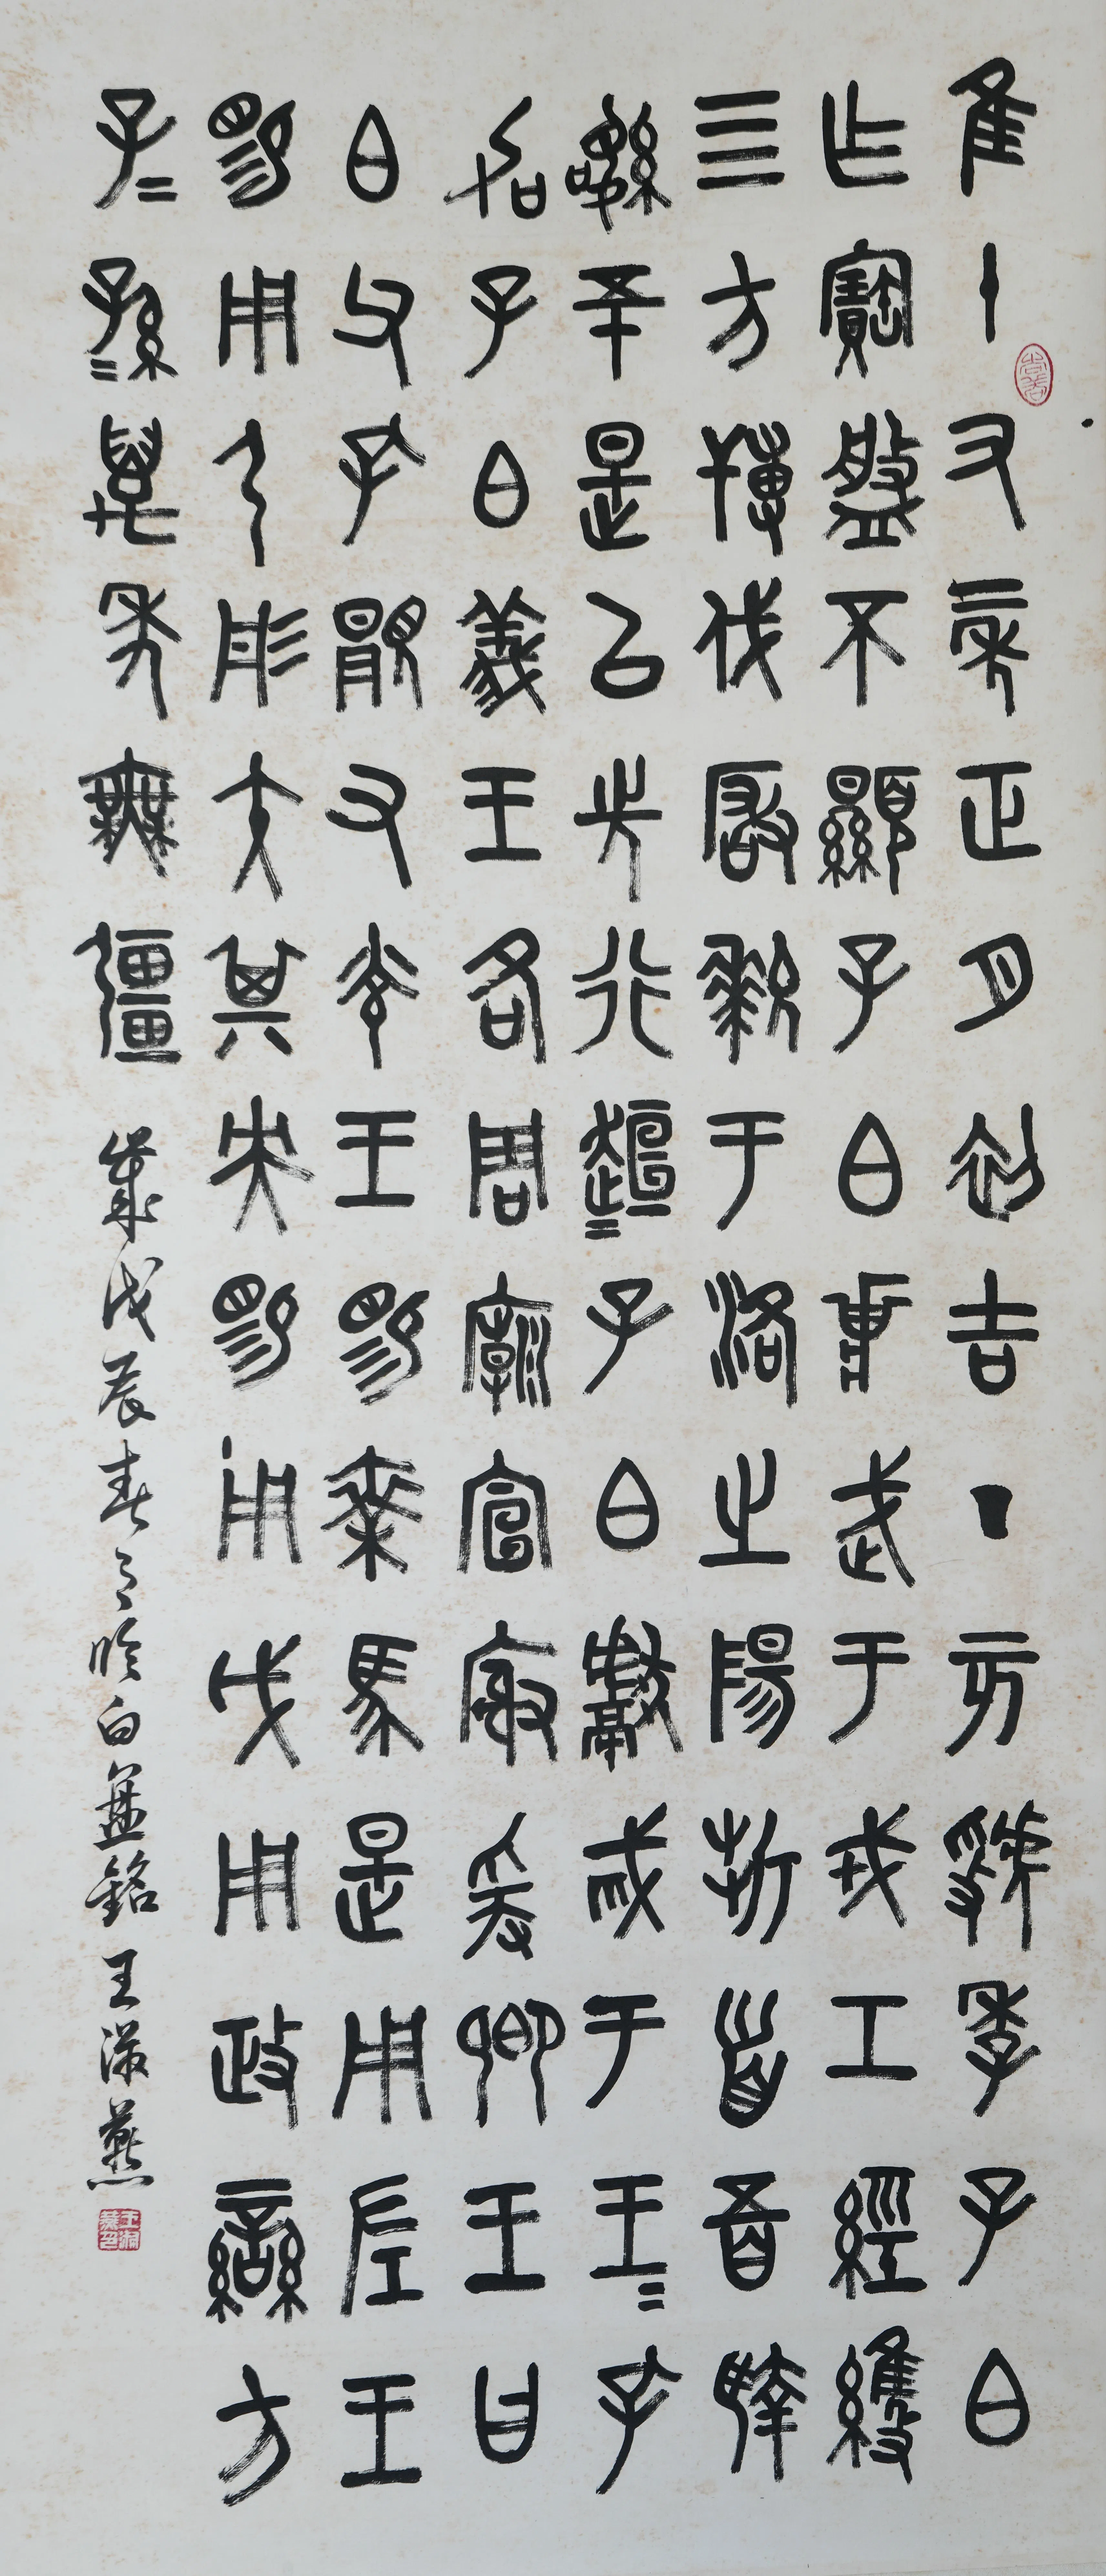 隹十又二年正月初吉丁亥虢季子白
乍寶盤不顯子白壯武于戎工經維
亖方搏伐玁狁于洛之陽折首五百執
訊五十是以先行桓=子白獻馘于王=孔
加子白義王各周廟宣榭爰鄉王曰
白父孔顯又光王賜乘馬是用左王
賜用弓彤矢其央賜用戉用政蠻方
子=孫=萬年無疆 歲戊辰春月臨白盤銘 王燕